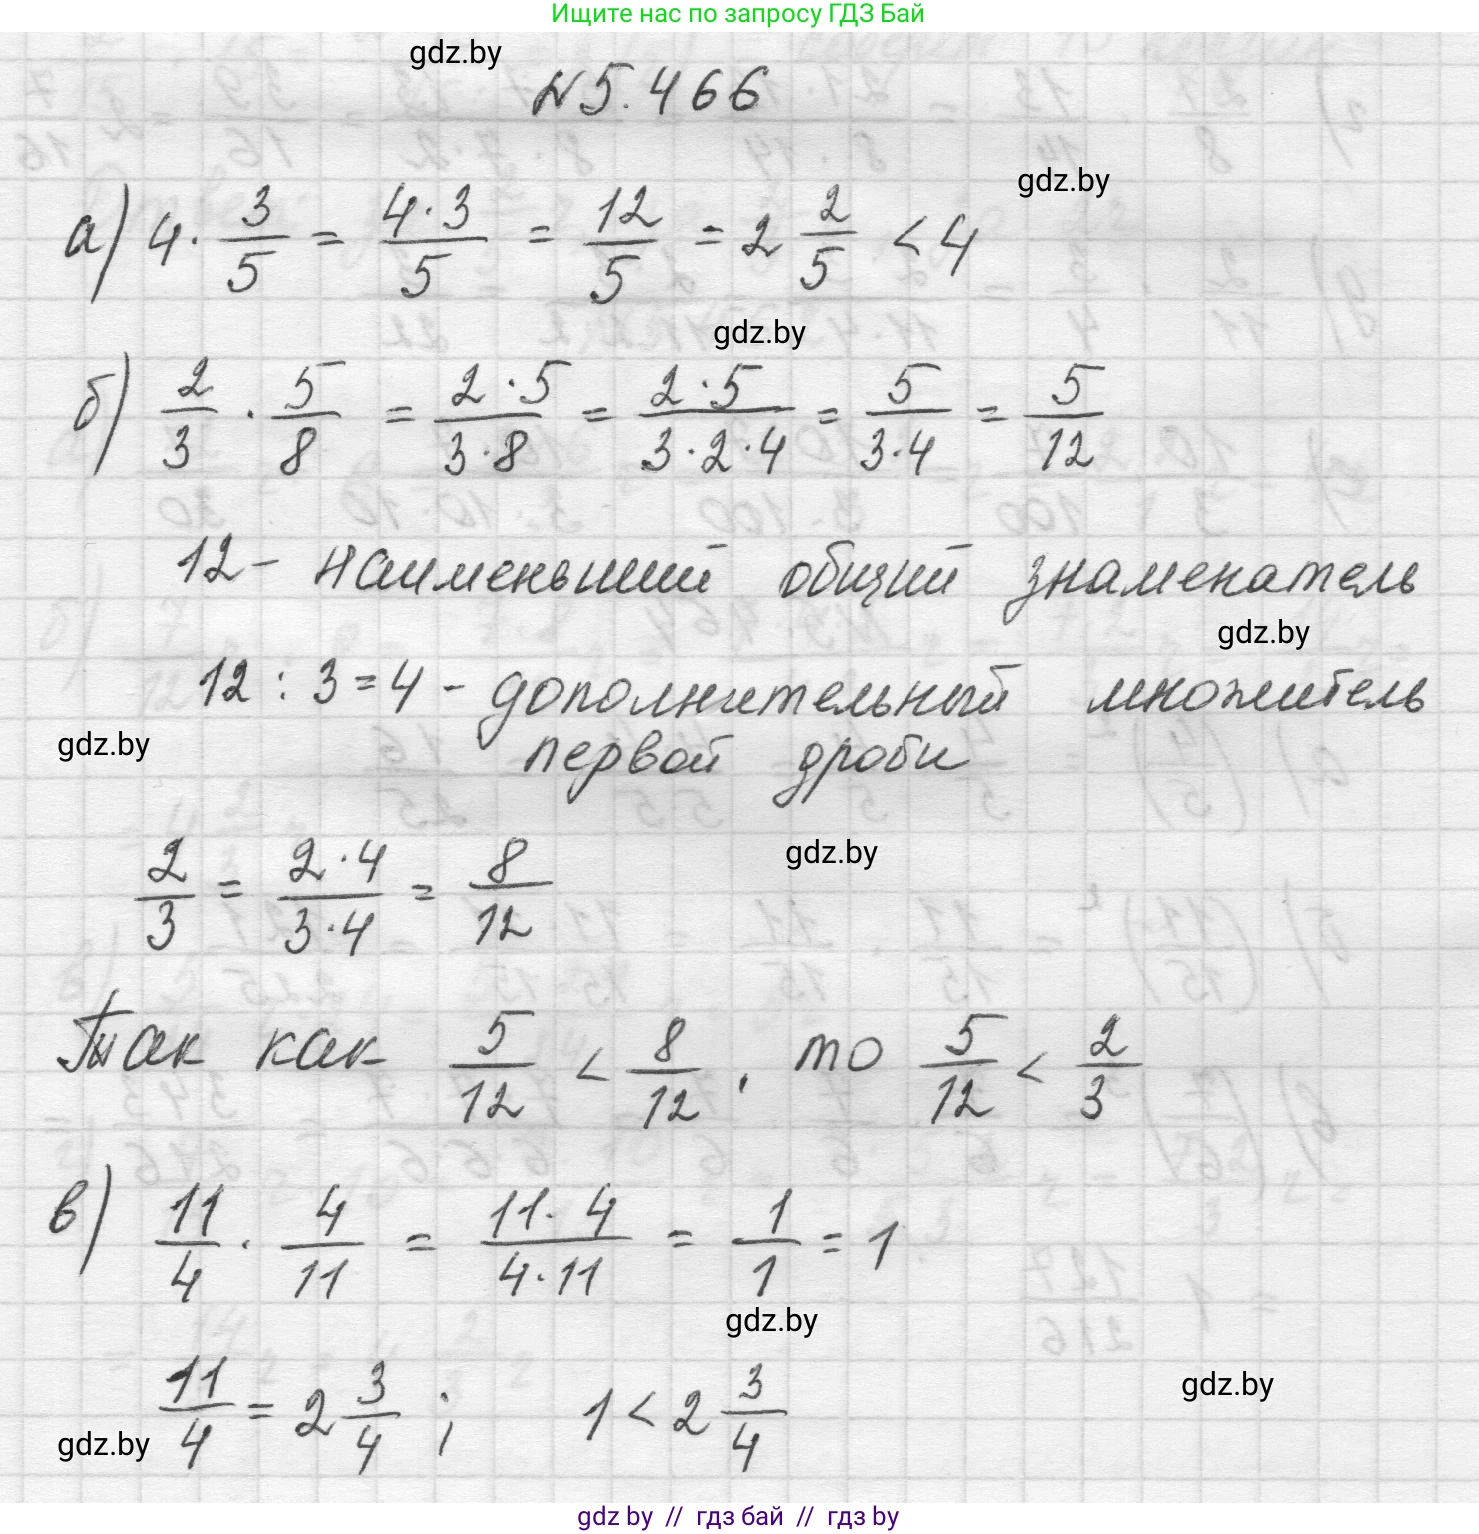 Ищите нас по запросу ГДЗ Бай
gdz.by
№5.466
gdz.by
а) 4 · 3/5 = 4·3/5 = 12/5 = 2 2/5 < 4
gdz.by
б) 2/3 · 5/8 = 2·5/3·8 = 2·5/3·2·4 = 5/3·4 = 5/12
12 - наименьший общий знаменатель
gdz.by
12 : 3 = 4 - дополнительный множитель
gdz.by
первой дроби
gdz.by
2/3 = 2·4/3·4 = 8/12
Так как 5/12 < 8/12, то 5/12 < 2/3
в) 11/4 · 4/11 = 11·4/4·11 = 1/1 = 1
gdz.by
gdz.by
11/4 = 2 3/4 ; 1 < 2 3/4
gdz.by
gdz by // гдз бай // гдз by